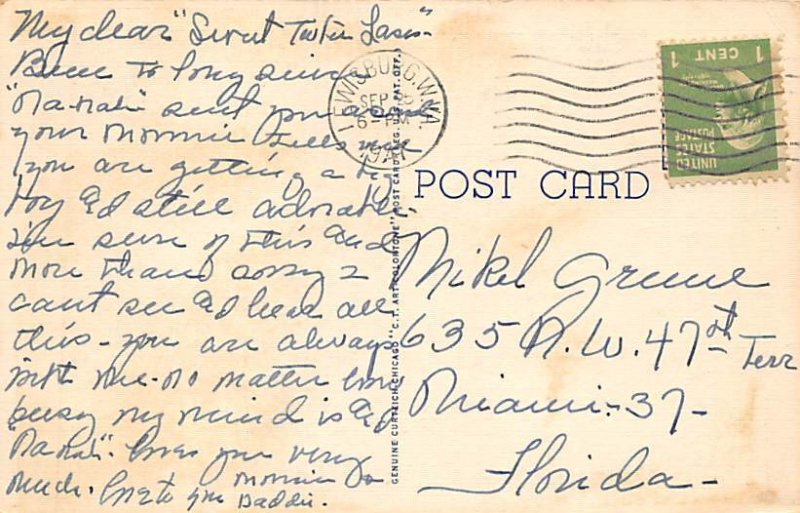 My dear "Sweet
Been so long since
"Na-nah" sent you a card
your Mommie tells me
you are getting a big
boy and still adorable.
I'm sure of this and
more than sorry I
can't see and hear all
this - you are always
with me - no matter how
busy my mind is and
"Na-nah" - loves you very
much. Love to you Mommie &
Daddie.
LEWISBURG, W.VA.
SEP
6 - PM
1947
1 CENT 1
UNITED
STATES
POSTAGE
POST CARD
GENUINE CURTEICH-CHICAGO "C.T. ART-COLORTONE" POST CARD (REG. U.S. PAT. OFF.)
Mikel Greene
635 N.W. 47th Terr
Miami - 37 -
Florida -